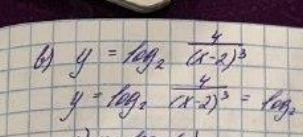 в) y = log₂ 4/(x-2)³
y = log₂ 4/(x-2)³ = log₂